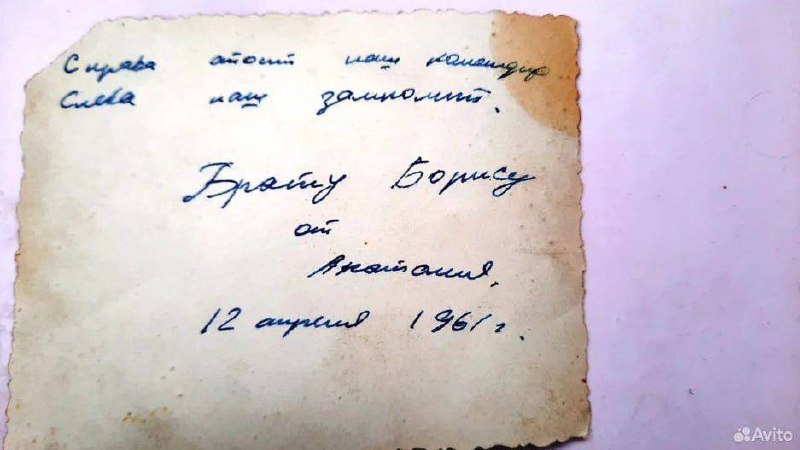 Справа стоит наш командир
Слева наш замполит.
Брату Борису
от
Анатолия.
12 апреля 1961 г.
Avito